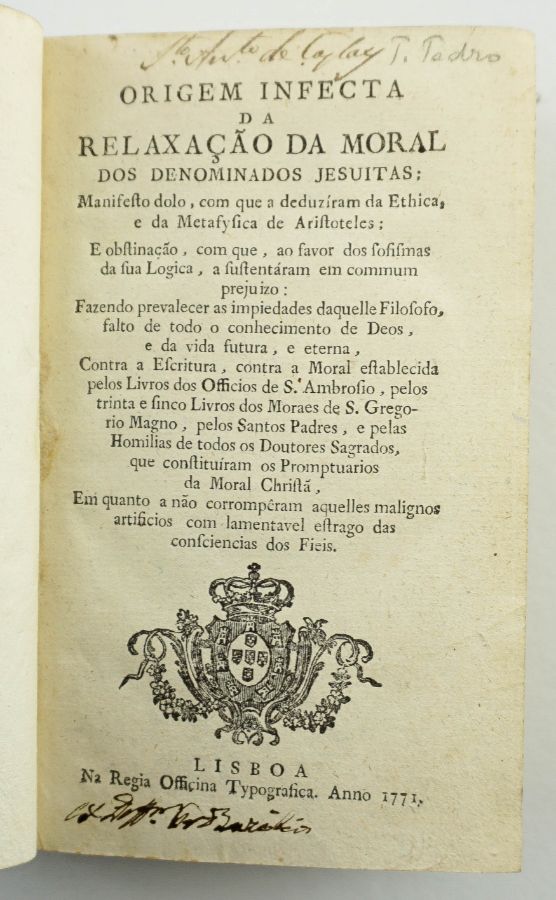 de T. Tadro
ORIGEM INFECTA
DA
RELAXAÇÃO DA MORAL
DOS DENOMINADOS JESUITAS:
Manifeſto dolo, com que a deduzíram da Ethica,
e da Metafyſica de Ariſtoteles;
E obſtinação, com que, ao favor dos ſofiſmas
da ſua Logica, a ſuſtentáram em commum
prejuizo:
Fazendo prevalecer as impiedades daquelle Filoſofo,
falto de todo o conhecimento de Deos,
e da vida futura, e eterna,
Contra a Eſcritura, contra a Moral eſtablecida
pelos Livros dos Officios de S. Ambroſio, pelos
trinta e ſinco Livros dos Moraes de S. Grego-
rio Magno, pelos Santos Padres, e pelas
Homilias de todos os Doutores Sagrados,
que conſtituíram os Promptuarios
da Moral Chriſtã,
Em quanto a não corrompêram aquelles malignos
artificios com lamentavel eſtrago das
conſciencias dos Fieis.
LISBOA
Na Regia Officina Typografica. Anno 1771.